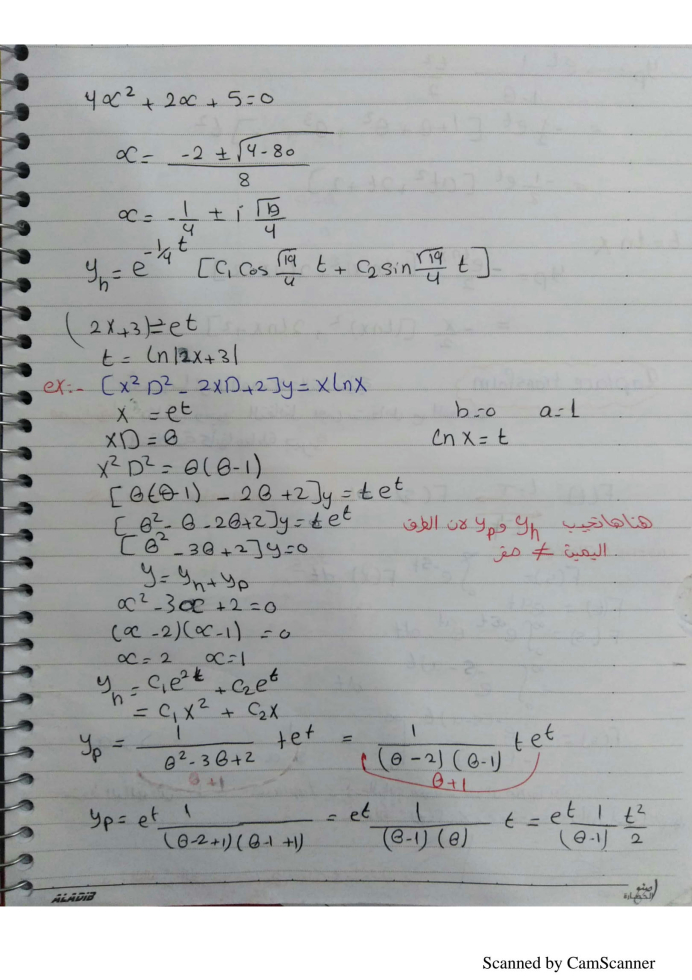 4α² + 2α + 5 = 0
α = (-2 ± √(4-80)) / 8
α = -1/4 ± i √19/4
y_h = e^(-1/4 t) [C₁ cos √19/4 t + C₂ sin √19/4 t]
(2x+3) = e^t
t = ln|2x+3|
ex:- [x²D² - 2xD+2]y = x lnx
x = e^t b=0 a=1
xD = θ ln x = t
x²D² = θ(θ-1)
[θ(θ-1) - 2θ+2]y = t e^t
[θ² - θ - 2θ+2]y = t e^t هنا هانجيب y_h و y_p لان الطرف
[θ² - 3θ+2]y = 0 اليمين ≠ صفر
y = y_h + y_p
α² - 3α + 2 = 0
(α - 2)(α - 1) = 0
α = 2 α = 1
y_h = C₁e^(2t) + C₂e^t
= C₁x² + C₂x
y_p = 1/(θ² - 3θ+2) te^t = 1/((θ - 2)(θ-1)) t e^t
θ+1 θ+1
y_p = e^t 1/((θ-2+1)(θ-1+1)) = e^t 1/((θ-1)(θ)) t = e^t 1/(θ-1) t²/2
ALADIB
Scanned by CamScanner